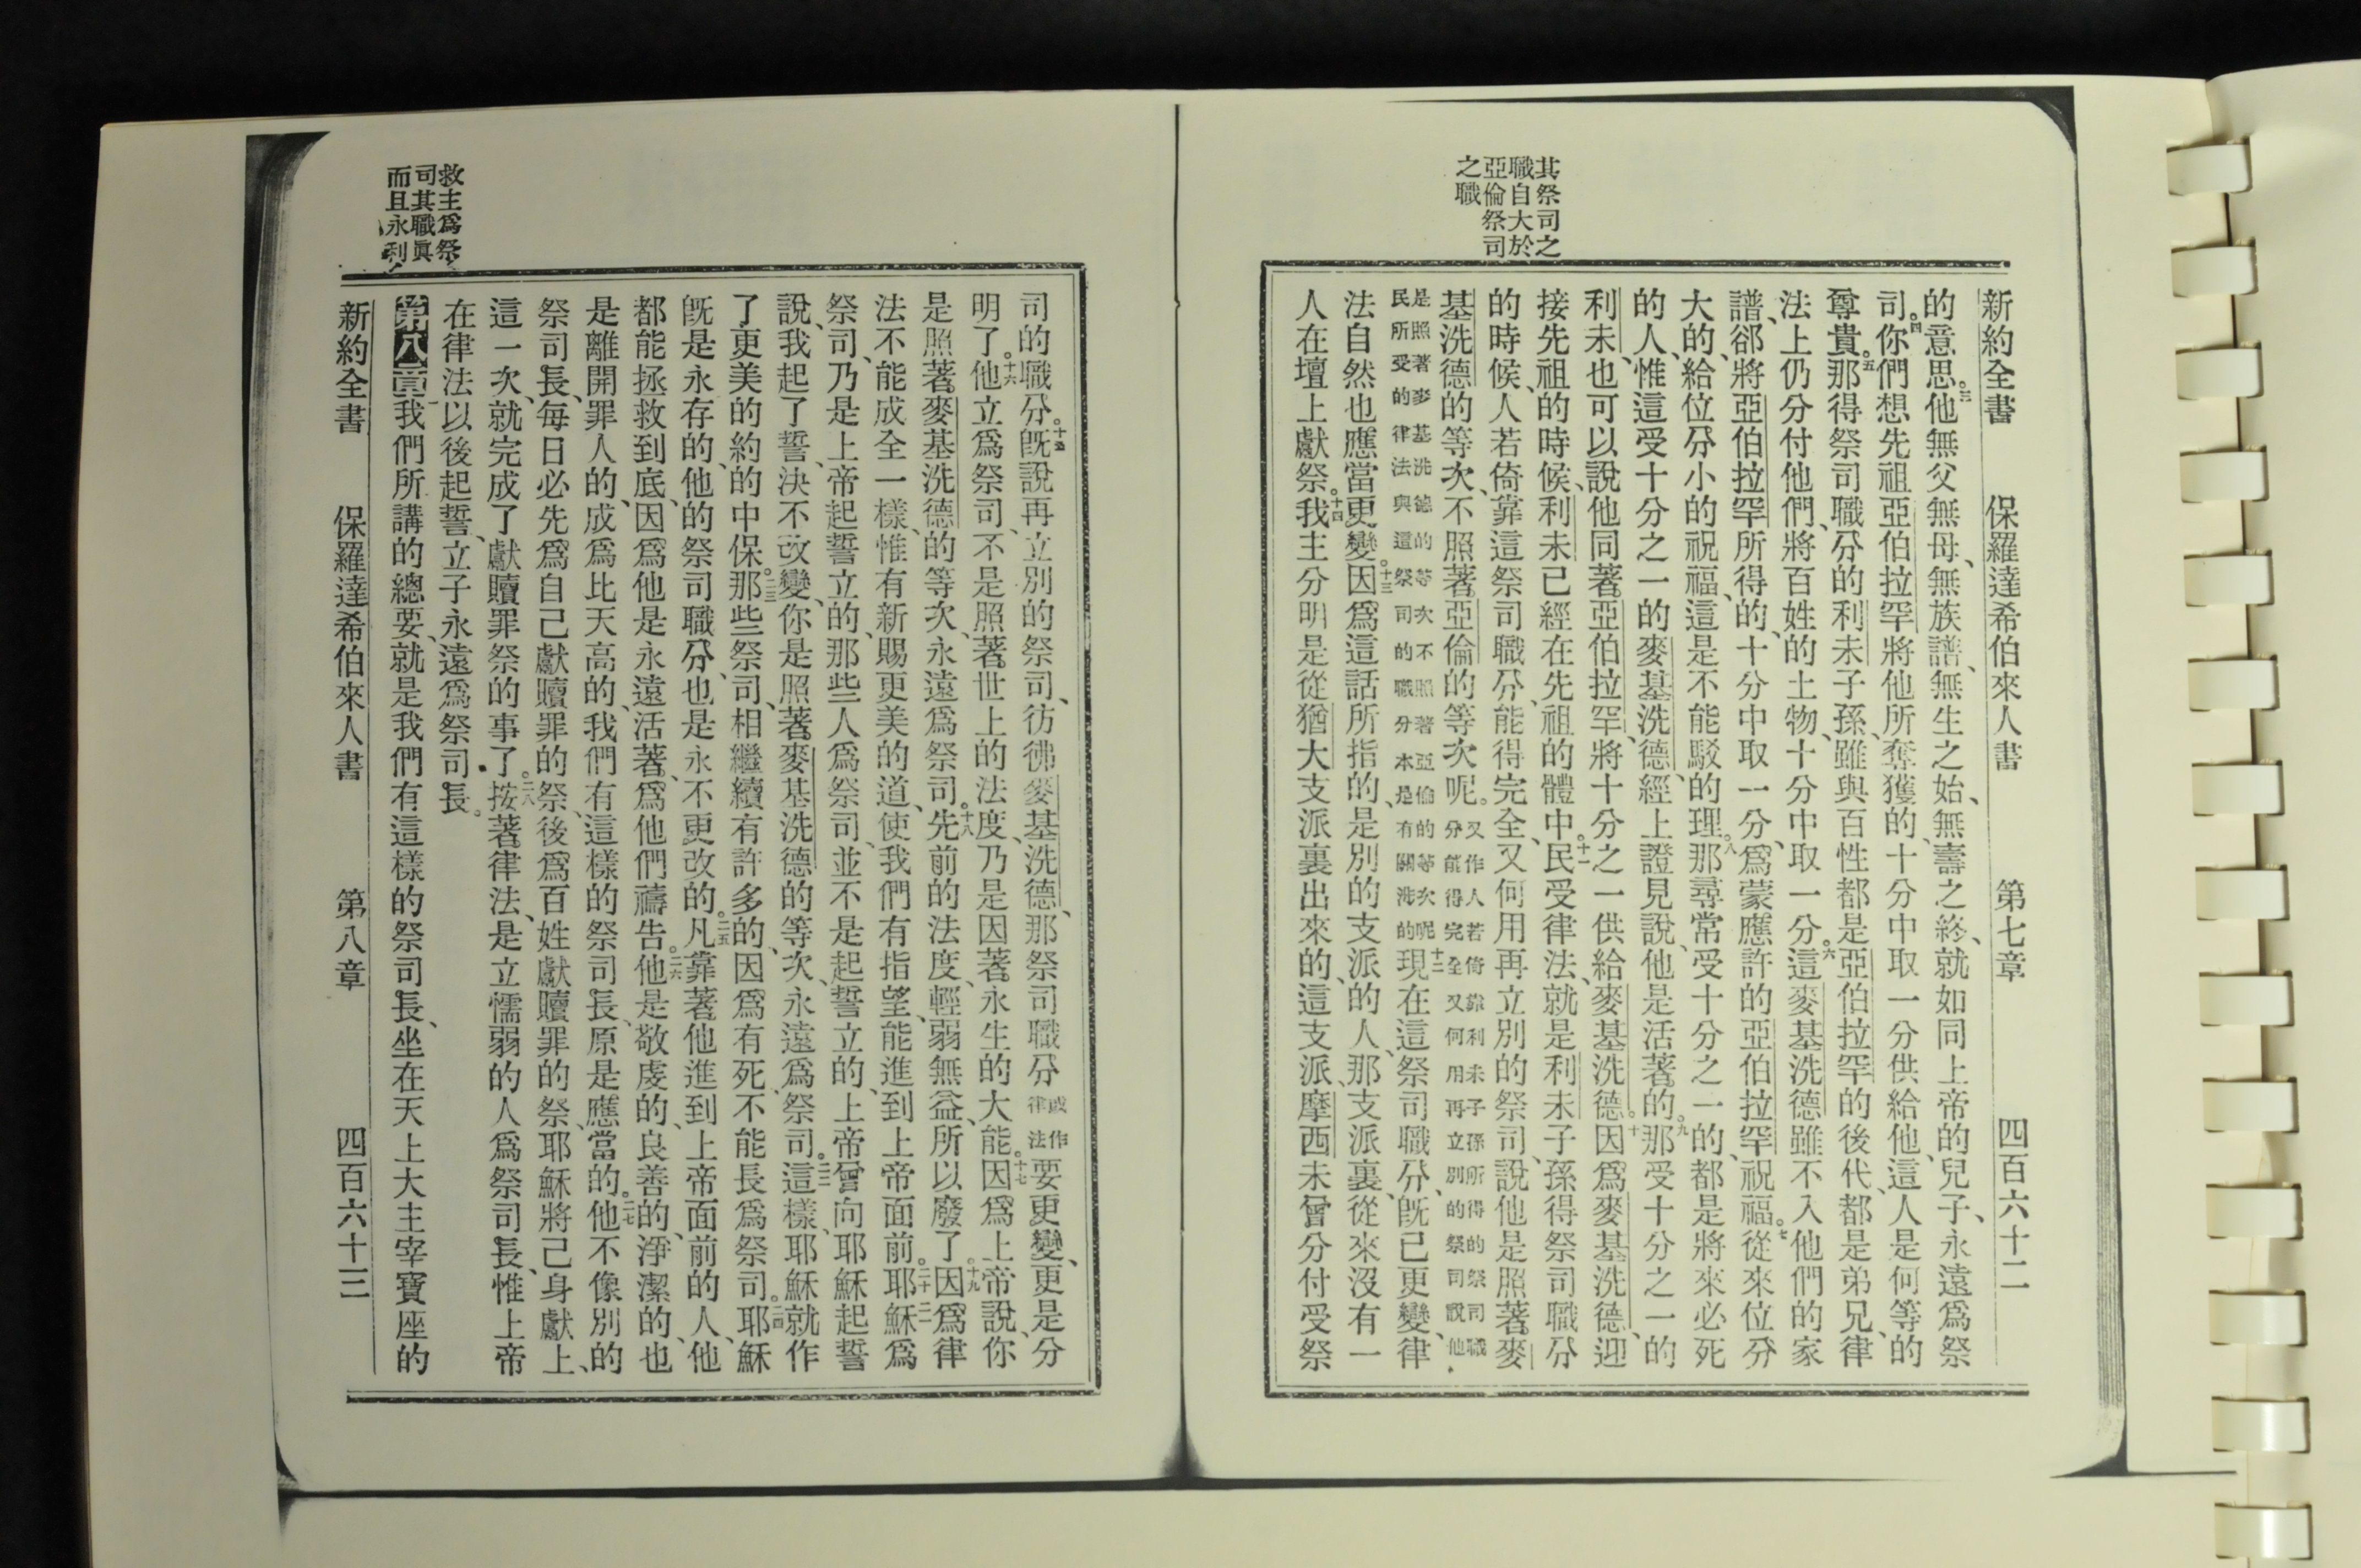 其祭司之
職自大於
亞倫祭司
之職
新約全書 保羅達希伯來人書 第七章 四百六十二
的意思。三他無父無母、無族譜、無生之始、無壽之終、就如同上帝的兒子、永遠爲祭
司。四你們想先祖亞伯拉罕將他所奪獲的、十分中取一分供給他、這人是何等的
尊貴。五那得祭司職分的利未子孫、雖與百姓都是亞伯拉罕的後代、都是弟兄、律
法上仍分付他們、將百姓的土物、十分中取一分。六這麥基洗德雖不入他們的家
譜、卻將亞伯拉罕所得的、十分中取一分、爲蒙應許的亞伯拉罕祝福。七從來位分
大的、給位分小的祝福、這是不能駁的理。八那尋常受十分之一的、都是將來必死
的人、惟這受十分之一的麥基洗德、經上證見說、他是活著的。九那受十分之一的
利未、也可以說他同著亞伯拉罕、將十分之一供給麥基洗德。十因爲麥基洗德、迎
接先祖的時候、利未已經在先祖的體中。十一民受律法、就是利未子孫得祭司職分
的時候、人若倚靠這祭司職分、能得完全、又何用再立別的祭司、說他是照著麥
基洗德的等次、不照著亞倫的等次呢。又作人若倚靠利未子孫所得的祭司職
分能得完全又何用再立別的祭司說他
是照著麥基洗德的等次不照著亞倫的等次呢
民所受的律法與這祭司的職分本是有關涉的十二現在這祭司職分、既已更變、律
法自然也應當更變。十三因爲這話所指的、是別的支派的人、那支派裏、從來沒有一
人在壇上獻祭。十四我主分明是從猶大支派裏出來的、這支派、摩西未曾分付受祭
救主爲祭
司其職眞
而且永利
司的職分。十五既說再立別的祭司、彷彿麥基洗德、那祭司職分或作
律法要更變、更是分
明了。十六他立爲祭司、不是照著世上的法度、乃是因著永生的大能。十七因爲上帝說、你
是照著麥基洗德的等次、永遠爲祭司。十八先前的法度、輕弱無益、所以廢了。十九因爲律
法不能成全一樣、惟有新賜更美的道、使我們有指望、能進到上帝面前。二十耶穌爲
祭司、乃是上帝起誓立的、那些人爲祭司、並不是起誓立的、二一上帝曾向耶穌起誓
說、我起了誓、決不改變、你是照著麥基洗德的等次、永遠爲祭司。二二這樣、耶穌就作
了更美的約的中保。二三那些祭司、相繼續有許多的、因爲有死、不能長爲祭司。二四耶穌
既是永存的、他的祭司職分、也是永不更改的。二五凡靠著他進到上帝面前的人、他
都能拯救到底、因爲他是永遠活著、爲他們禱告。二六他是敬虔的、良善的、淨潔的、也
是離開罪人的、成爲比天高的、我們有這樣的祭司長、原是應當的。二七他不像別的
祭司長、每日必先爲自己獻贖罪的祭、後爲百姓獻贖罪的祭、耶穌將己身獻上、
這一次、就完成了獻贖罪祭的事了。二八按著律法、是立懦弱的人爲祭司長、惟上帝
在律法以後起誓、立子永遠爲祭司長。
第八章我們所講的總要、就是我們有這樣的祭司長、坐在天上大主宰寶座的
新約全書 保羅達希伯來人書 第八章 四百六十三